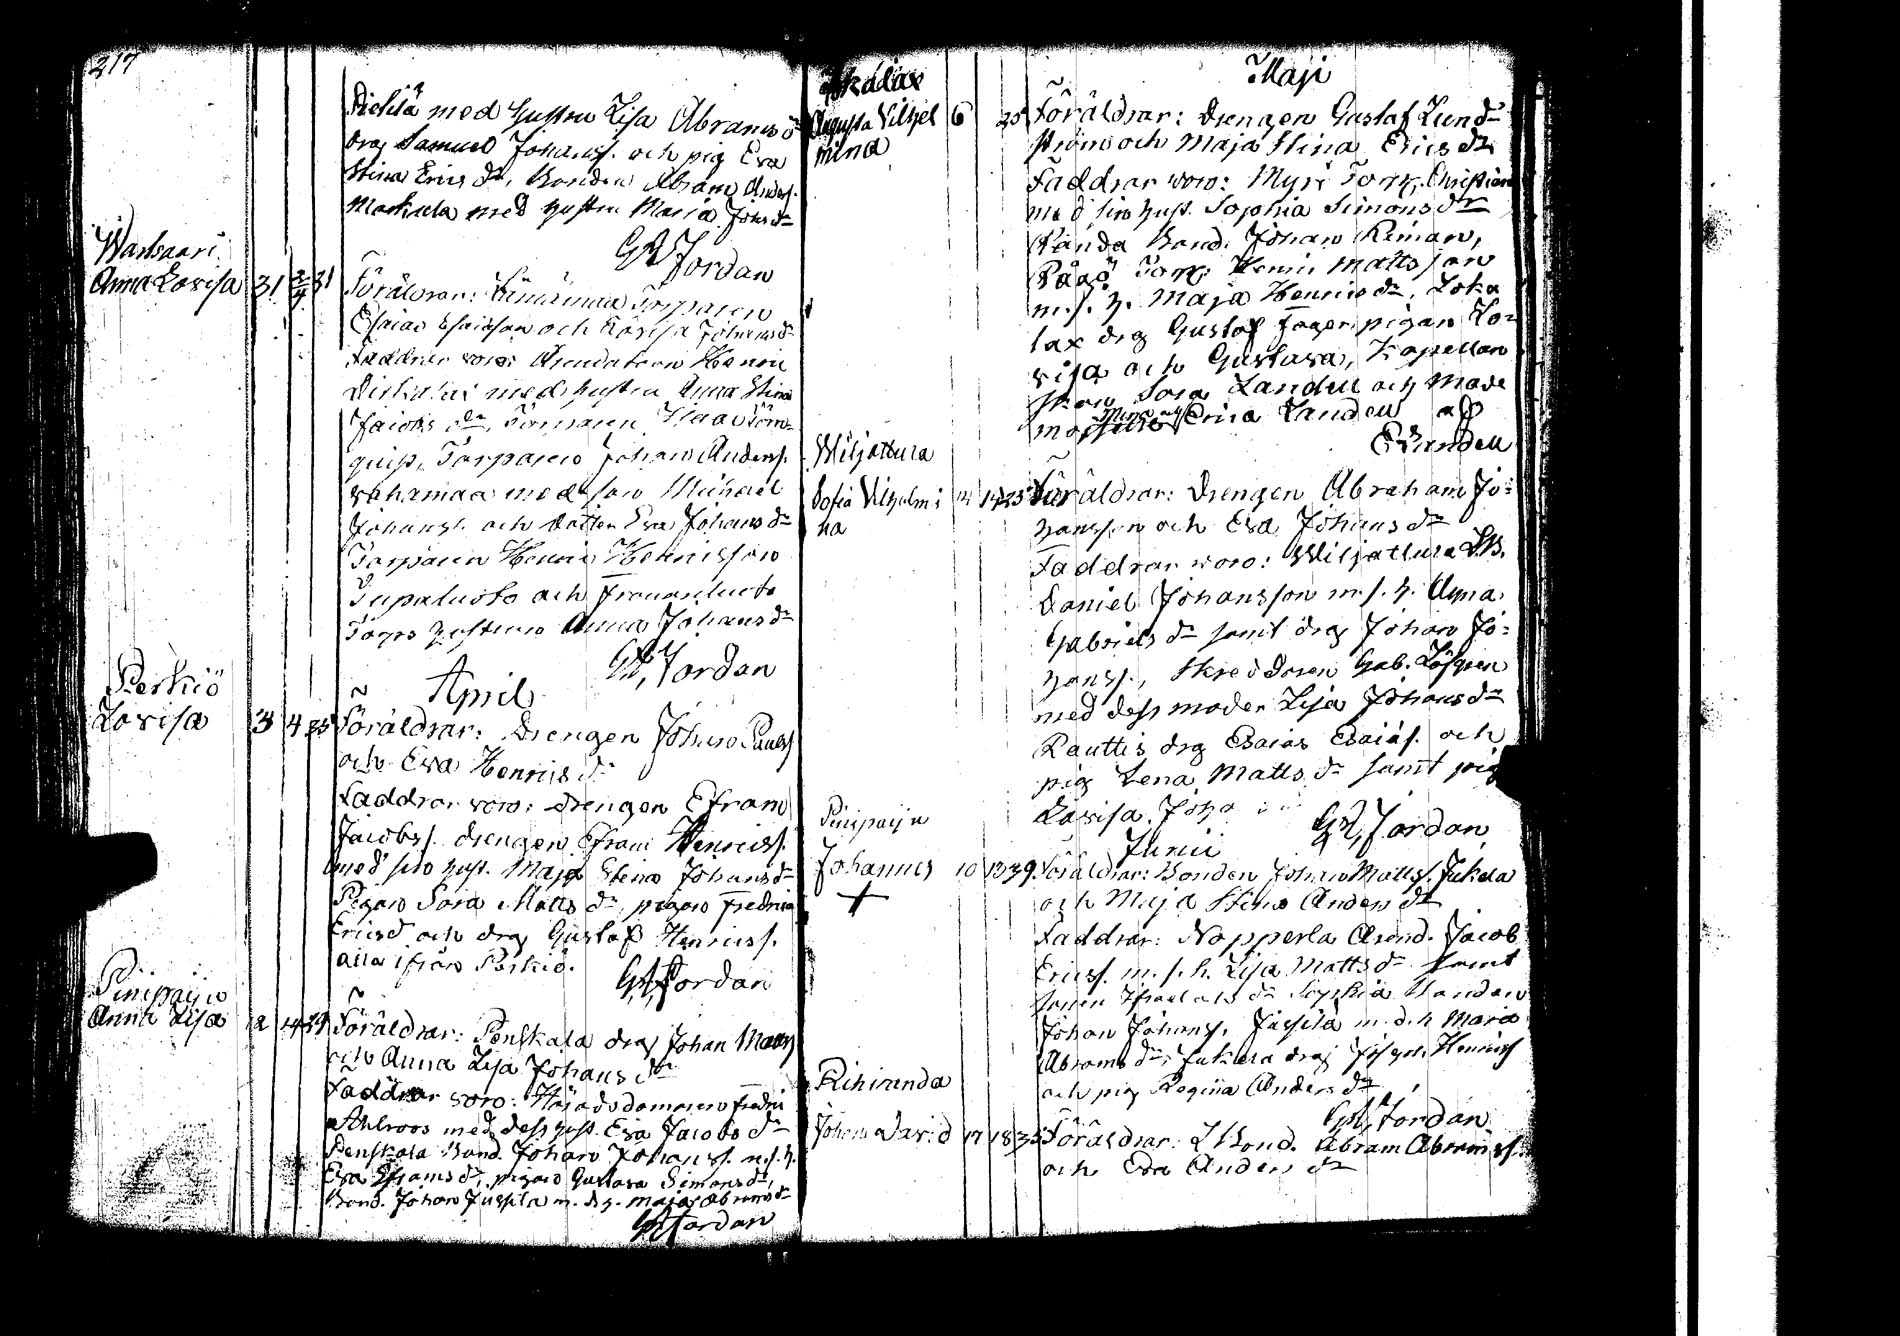 217
Pietilä med hustru Lisa Abrams dr
drg Samuel Johanss. och pig Eva
Stina Erics dr, Bonden Abram Anders.
Markula med hustru Maria Johs dr
GA Jordan
Warlsaari
Anna Lovisa 31 31
Föräldrar: Torparen
Esaias Esaisson och Lovisa Johans dr
Faddrar woro: Arendatorn Henric
med hustru Anna Stina
Jacobs dr, Torparen Isaac Törn-
quist, Torparen Johan Anders.
Wahamaa med son Michael
Johanss. och dotter Eva Johans dr
Torparen Henric Henricsson
Tupaluoto och
Torps hustrun Anna Johans dr
GA Jordan
April
Perkiö
Lovisa 3 4 35
Föräldrar: Drengen Johan Paulss
och Eva Henrics dr
Faddrar woro: drengen Efram
Jacobss. drengen Efram Henricss.
med sin hust. Maja Stina Johans dr
Pigan Sara Matts dr, pigan Fredrica
Erics d och drg Gustaf Henricss.
alla ifrån Perkiö.
GA Jordan
Pinipaiju
Anna Lisa 12 14 29
Föräldrar: Penskala drg Johan Matss
och Anna Lisa Johans dr
Faddrar woro: Häradsdomaren Fredric
Ahlroos med dess hust. Eva Jacobs dr
Penskala Bond. Johan Johanss. m. s. h.
Eva Efraims dr, pigan Gustava Simons dr,
Bond. Johan Jussila m. d. h. Maja Abrams dr
GA Jordan
Maji
Augusta Vilhel 6 25
mina
Föräldrar: Drengen Gustaf Lund-
ström och Maja Stina Erics dr
Faddrar woro: Torp. Christian
med sin hust. Sophia Simons dr
Bond. Johan Reman,
Torp. Henric Mattsson
m. s. h. Maja Henrics dr, Loka
lax drg Gustaf Fager, pigan Lo-
visa och Gustava, Kapellan
skan Sara Landell och Made
Mina och
Erica Landell af
E Landell
Wiljattura
Sofia Vilhelmi 14 14 25
na
Föräldrar: Drengen Abraham Jo-
hansson och Eva Johans dr
Faddrar woro: Wiljattura LB.
Daniel Johansson m. s. h. Anna
Gabriels dr samt drg Johan Jo-
hanss., Skreddaren Gab. Löfgren
med dess moder Lisa Johans dr
Rauttis drg Esaias Esaiass. och
pig Lena Matts dr samt pig
Lovisa Joha
GA Jordan
Junii
Pinipaiju
Johannes 10 13 39
+
Föräldrar: Bonden Johan Matts. Jukela
och Maja Stina Anders dr
Faddrar: Nopperla Arend. Jacob
Ericss. m. s. h. Lisa Matts dr samt
dr Sophia Bonden
Johan Johanss. Jussila m. d. h Maria
Abrams dr, Jukela drg Henricss
och pig Regina Anders dr
GA Jordan
Rihiranda
Johan David 17 18 35
Föräldrar: LBond. Abram Abramss.
och Eva Anders dr